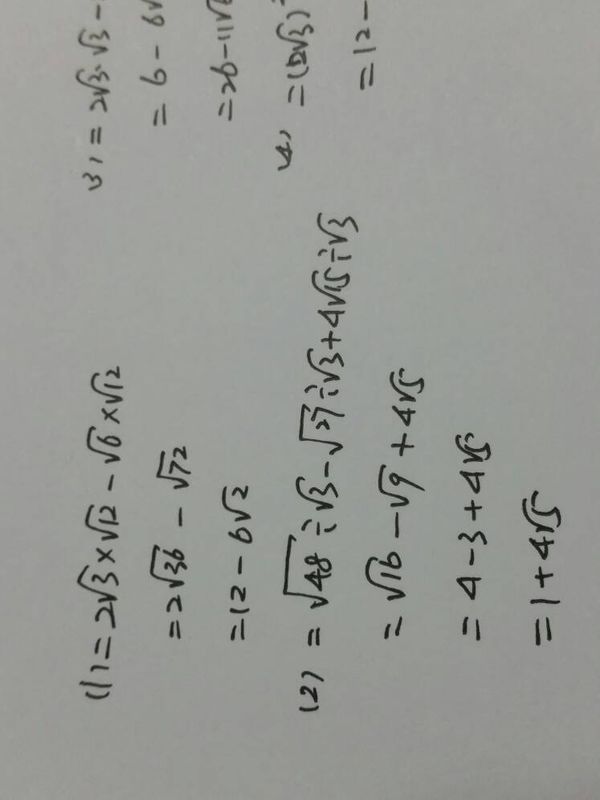 (1) = 2√3×√12 - √6×√12
= 2√36 - √72
= 12 - 6√2
(2) = √48÷√3 - √27÷√3 + 4√15÷√3
= √16 - √9 + 4√5
= 4 - 3 + 4√5
= 1 + 4√5
(3) = 2√3·√3 -
= 6 - 6√
= 26 - 11√6
(4) = (2√3)
= 12 -